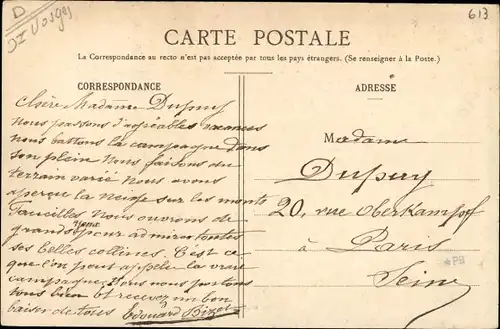 D
Vosges
613
CARTE POSTALE
La Correspondance au recto n'est pas acceptée par tous les pays étrangers. (Se renseigner à la Poste.)
CORRESPONDANCE
Chère Madame Dupuy
Nous passons d'agréables vacances
nous battons la campagne dans
son plein Nous faisons du
terrain varié Nous avons
aperçu la neige sur les monts
Faucilles Nous ouvrons de
grands yeux pour admirer toutes
ses belles collines. C'est ce
que l'on peut appeler la vraie
campagne Nous nous portons
tous bien et recevez un bon
baiser de tous Edouard Bizot
ADRESSE
Madame
Dupuy
20, rue Oberkampf
à Paris
Seine
*PB